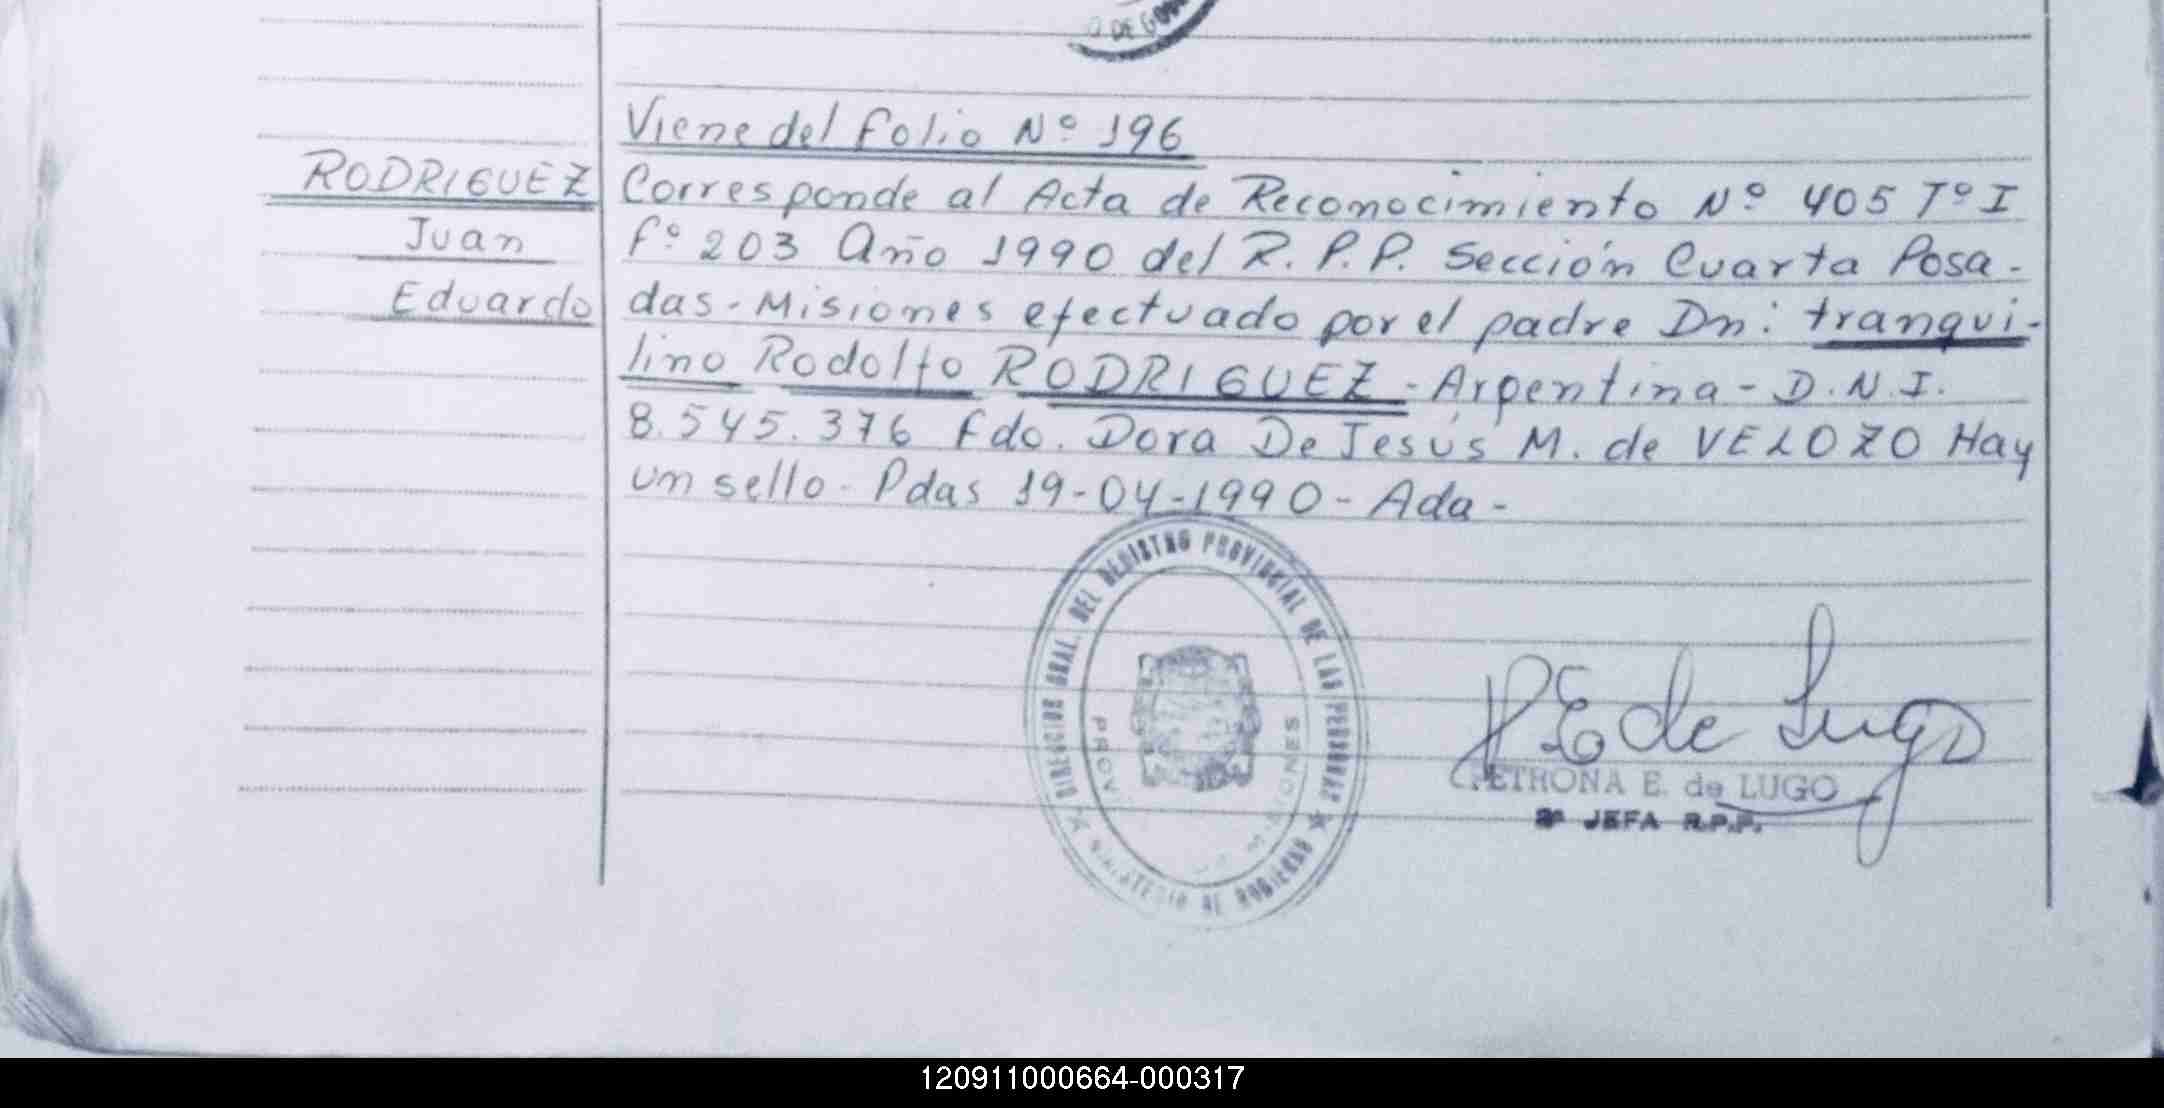 O DE GOB
Viene del folio Nº 196
RODRIGUEZ Corresponde al Acta de Reconocimiento Nº 405 Tº I
Juan fº 203 Año 1990 del R.P.P. Sección Cuarta Posa-
Eduardo das - Misiones efectuado por el padre Dn: tranqui-
lino Rodolfo RODRIGUEZ - Argentina - D.N.I.
8.545.376 fdo. Dora De Jesús M. de VELOZO Hay
un sello - Pdas 19-04-1990 - Ada -
DIRECCION GRAL. DEL REGISTRO PROVINCIAL DE LAS PERSONAS
MINISTERIO DE GOBIERNO
MISIONES
P E de Lugo
PETRONA E. de LUGO
2ª JEFA R.P.P.
120911000664-000317